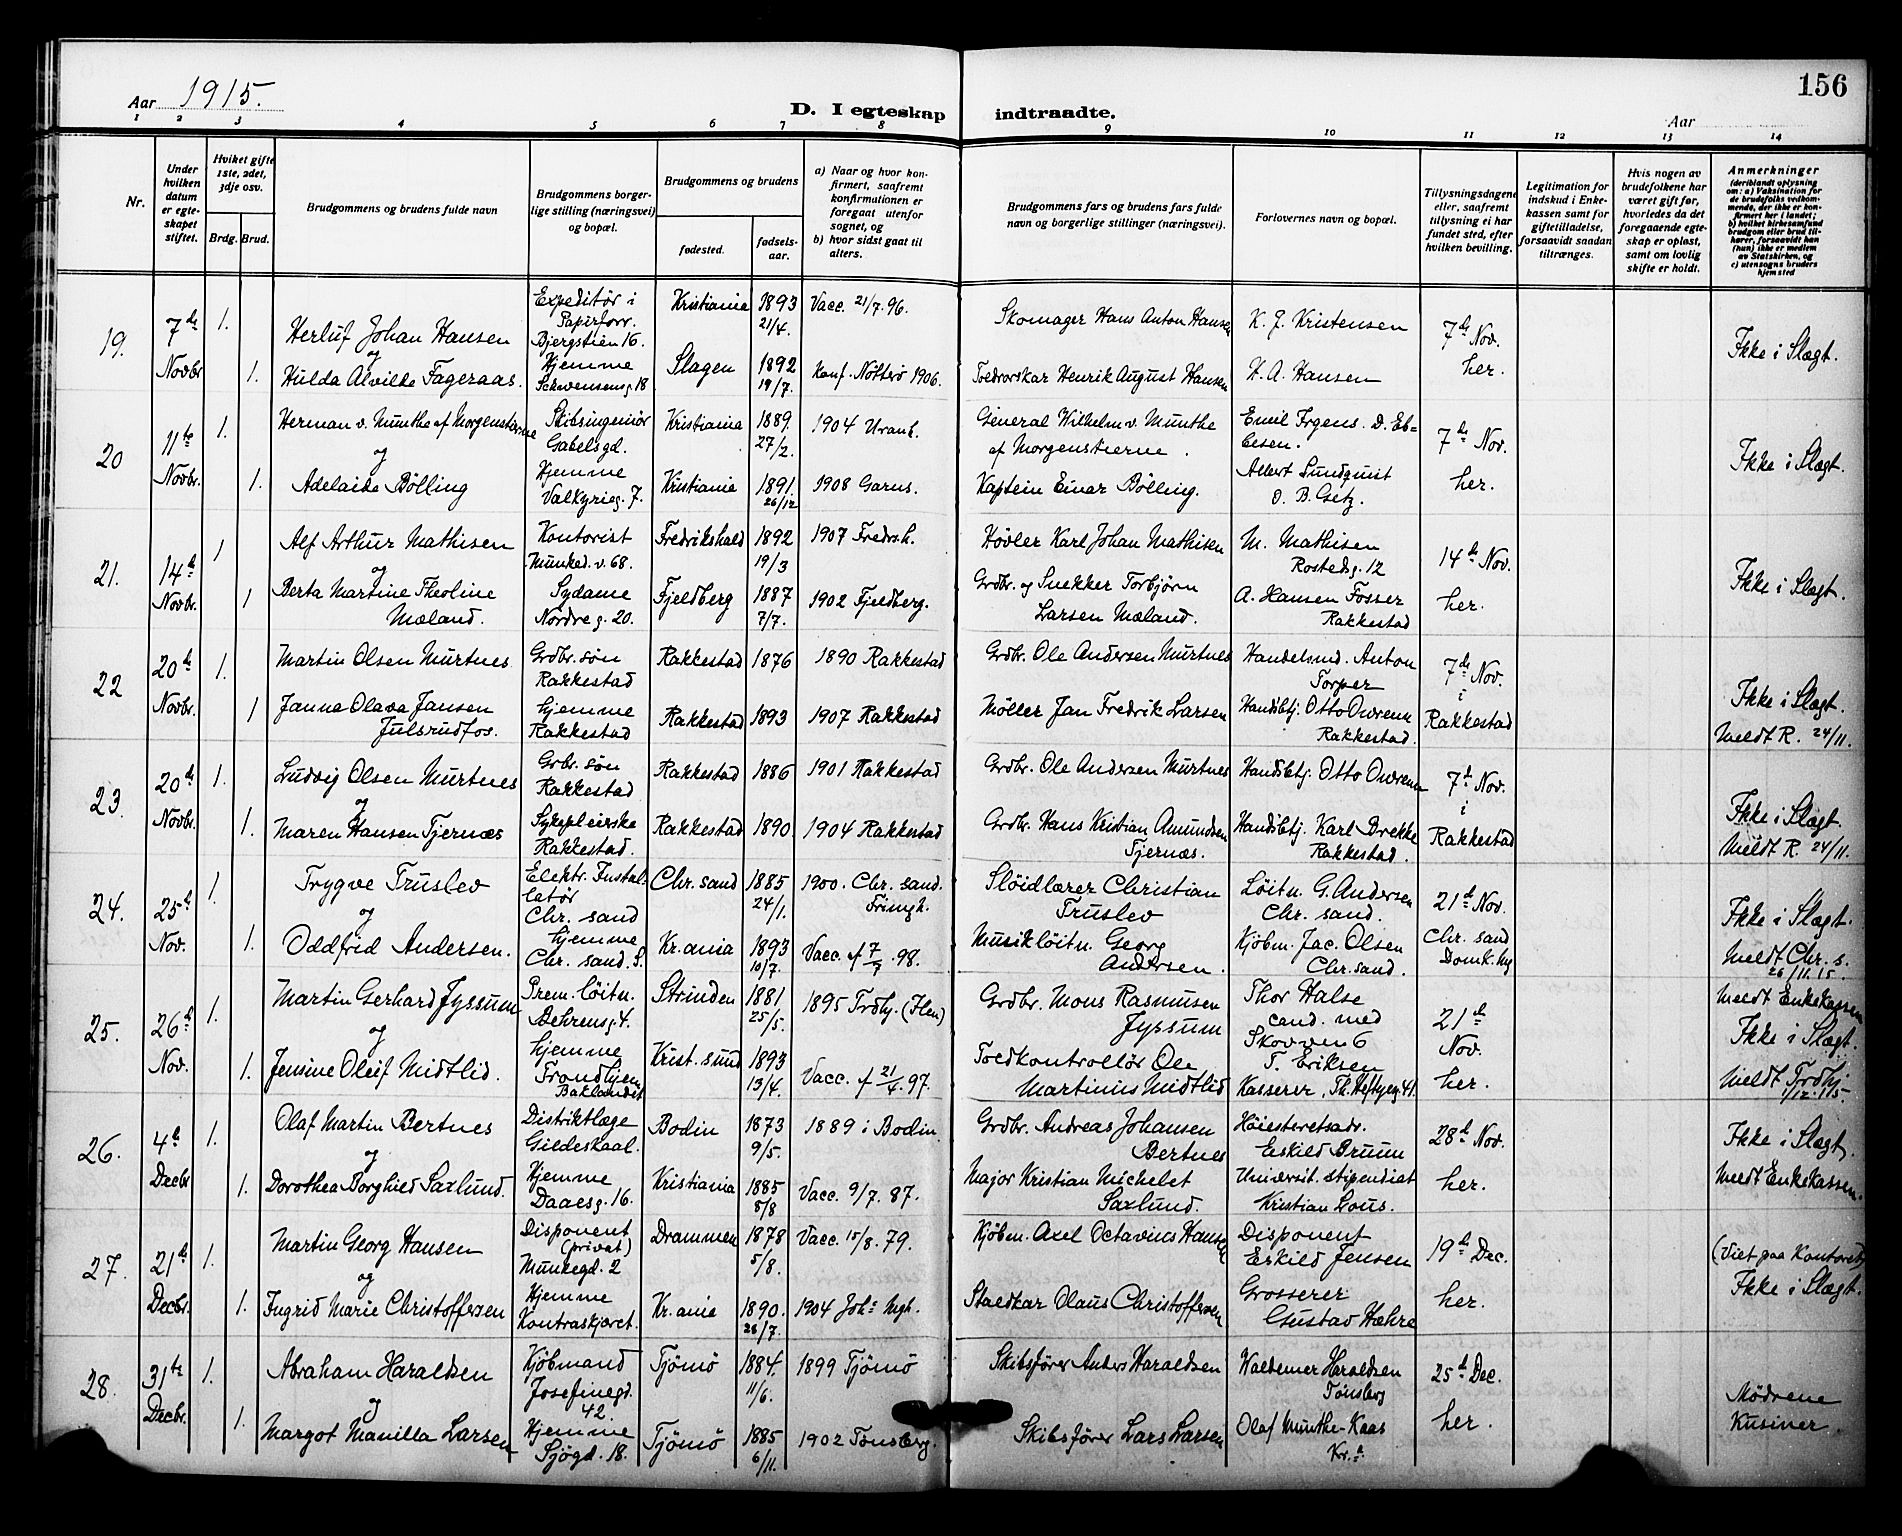 156
Aar 1915.
D. I egteskap indtraadte.
Aar
1 2 3 4 5 6 7 8 9 10 11 12 13 14
Nr.
Under hvilken datum er egteskapet stiftet.
Hvilket gifte 1ste, 2det, 3dje osv.
Brdg. Brud.
Brudgommens og brudens fulde navn
Brudgommens borgerlige stilling (næringsvei) og bopæl.
Brudgommens og brudens
fødested. fødselsaar.
a) Naar og hvor konfirmert, saafremt konfirmationen er foregaat utenfor sognet, og
b) hvor sidst gaat til alters.
Brudgommens fars og brudens fars fulde navn og borgerlige stillinger (næringsvei).
Forlovernes navn og bopæl.
Tillysningsdagene eller, saafremt tillysning ei har fundet sted, efter hvilken bevilling.
Legitimation for indskud i Enkekassen samt for giftetilladelse, forsaavidt saadan tiltrænges.
Hvis nogen av brudefolkene har været gift før, hvorledes da det foregaaende egteskap er opløst, samt om lovlig skifte er holdt.
Anmerkninger
(deriblandt oplysning om: a) Vaksination for de brudefolks vedkommende, der ikke er konfirmert her i landet; b) hvilket kirkesamfund brudgom eller brud tilhører, forsaavidt han (hun) ikke er medlem av Statskirken, og c) utensogns bruders hjemsted
19. 7de Novbr 1. Herluf Johan Hansen Expeditør i Papirforr. Bjergstien 16. Kristiania 1893 21/4. Vacc. 21/7. 96. Skomager Hans Anton Hansen K. J. Kristensen 7de Nov. her. Ikke i Slægt.
og
1. Hulda Alvilde Fageraas. Hjemme Schwensensg. 18 Slagen 1892 19/7. Konf. Nøtterø 1906. Henrik August Hansen H. A. Hansen
20 11te Novbr. 1. Herman v. Munthe af Morgenstierne Skibsingeniør Gabelsgd. Kristiania 1889. 27/2. 1904 Uranb. General Wilhelm v. Munthe af Morgenstierne. Emil Irgens. D. Ebbesen. 7de Nov. her. Ikke i Slægt.
og
1. Adelaide Bölling Hjemme Valkyrieg. 7. Kristiania 1891. 26/12 1908 Garns. Kaptein Einar Bölling. Albert Lundquist D. B. Getz.
21. 14de Novbr. 1 Alf Arthur Mathisen Kontorist Munked. v. 68. Fredrikshald 1892 19/3 1907 Fredrh. Høvler Karl Johan Mathisen M. Mathisen Rostedsg. 12 14de Nov. her. Ikke i Slægt.
og
1 Berta Martine Theoline Mæland. Sydame Nordreg. 20. Fjeldberg 1887 7/7. 1902 Fjeldberg. Grdbr. og Snekker Torbjörn Larsen Mæland. A. Hansen Fosser Rakkestad
22 20de Novbr. 1. Martin Olsen Murtnes Grdbr. søn Rakkestad Rakkestad 1876 1890 Rakkestad Grdbr. Ole Andersen Murtnes Handelsmd. Anton Torper 7de Nov. i Rakkestad Ikke i Slægt. Meldt R. 24/11.
1 Janna Olava Jansen Julsrudfos. Hjemme Rakkestad Rakkestad 1893 1907 Rakkestad Møller Jan Fredrik Larsen Handlsbtj. Otto Rakkestad.
23. 20de Novbr. 1. Ludvig Olsen Murtnes Grbr. søn Rakkestad Rakkestad 1886 1901 Rakkestad Grdbr. Ole Andersen Murtnes Handlsbtj. Otto 7de Nov. i Rakkestad Ikke i Slægt. Meldt R. 24/11.
og
1. Maren Hansen Tjernæs Sykepleierske Rakkestad. Rakkestad 1890. 1904 Rakkestad Grdbr. Hans Kristian Amundsen Tjernæs. Handlsbtj. Karl Drekke Rakkestad.
24. 25de Nov. 1. Trygve Truslev Elektr. Installatør Chr. sand Chr. sand 1885 24/1. 1900. Chr. sand. Sløidlærer Christian Truslev Løitn. G. Andersen Chr. sand. 21de Nov. Chr. sand Domk. Ikke i Slægt. Meldt Chr. s. 26/11. 15.
og
1. Oddfrid Andersen. Hjemme Chr. sand. S. Kr.ania 1893 10/7. Vacc. 98. Musikløitn. Georg Andersen. Kjøbm. Jac. Olsen Chr. sand.
25. 26de Nov. 1. Martin Gerhard Jyssum Prem. løitn. Behrensg. 4. Strinden 1881 25/5. 1895 Trdhj. (Ilen) Grdbr. Mons Rasmusen Jyssum Thor Halse cand. med Skovven 6 21de Nov. her. Meldt Enkekassen Ikke i Slægt. Meldt Trdhj. 1/12. 15.
og
1. Jensine Oleif Midtlid. Hjemme Trondhjem Baklandet Krist. sund 1893 13/4. Vacc. 21/4. 97. Toldkontrollør Ole Martinius Midtlid T. Eriksen Kasserer, Th. Heftyesg 41.
26. 4de Decbr 1. Olaf Martin Bertnes Distriktlæge Gildeskaal. Bodin 1873 9/5. 1889 i Bodin Grdbr. Andreas Johansen Bertnes Høiesteretsadv. Eskild Bruun 28de Nov. her. Ikke i Slægt. Meldt Enkekassen.
og
1. Dorothea Borghild Saxlund. Hjemme Daaesg. 16. Kristiania 1885 5/8 Vacc. 9/7. 87. Major Kristian Michelet Saxlund. Universit. stipendiat Kristian Lous.
27. 21de Decbr. 1. Martin Georg Hansen Disponent (privat) Munkegd. 2 Drammen 1878 5/8. Vacc. 15/8. 79. Kjøbm. Axel Octavius Hansen Disponent Eskild Jensen 19de Dec. her. (Viet paa Kontoret) Ikke i Slægt.
og
1. Ingrid Marie Christoffersen Hjemme Kontraskjæret. Kr.ania 1890. 26/7. 1904 Joh: Staldkar Olaus Christoffersen Grosserer Gustav Hæhre
28. 31te Decbr. 1. Abraham Haraldsen Kjöbmand Josefinegd. 42. Tjömö 1884. 11/6. 1899 Tjömö Skibsfører Anders Haraldsen Waldemer Haraldsen Tønsberg 25de Dec. her. Mødrene Kusiner.
og
1. Margot Manilla Larsen Hjemme Sjøgd. 18. Tjömö 1885 6/11. 1902 Tønsberg. Skibsfører Lars Larsen Olaf Munthe-Kaas Kr.a